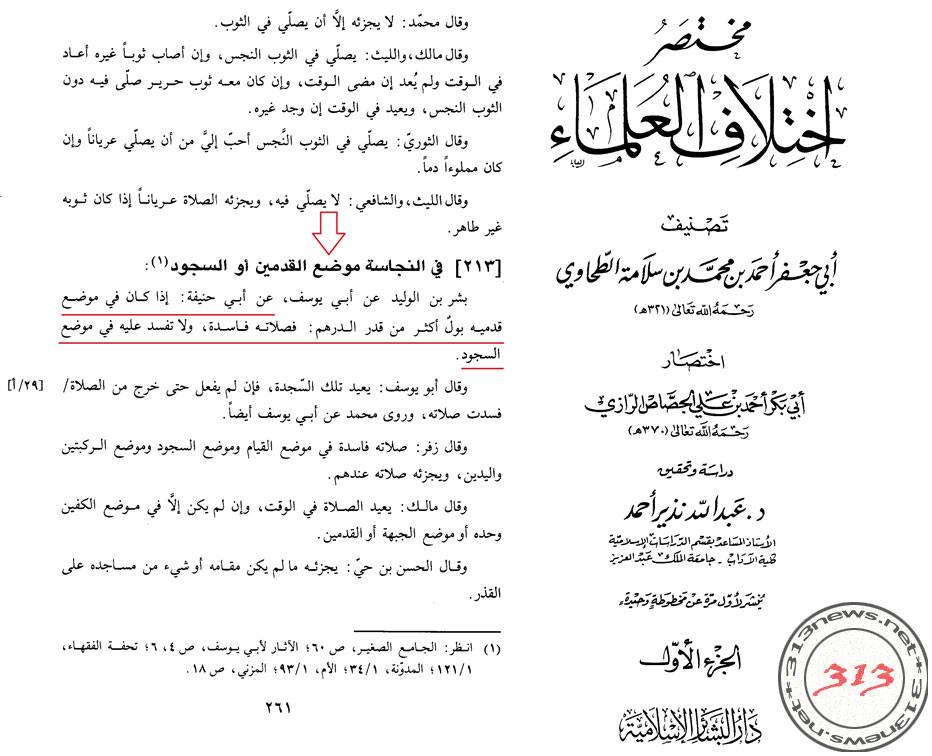 مختصر
اختلاف العلماء
تصنيف
أبي جعفر أحمد بن محمد بن سلامة الطحاوي
رحمه الله تعالى (٣٢١هـ)
اختصار
أبي بكر أحمد بن علي الجصاص الرازي
رحمه الله تعالى (٣٧٠هـ)
دراسة وتحقيق
د. عبد الله نذير أحمد
الأستاذ المساعد بقسم الدراسات الإسلامية
كلية الآداب - جامعة الملك عبد العزيز
ينشر لأول مرة عن مخطوطة وحيدة
الجزء الأول
دار البشائر الإسلامية
وقال محمّد: لا يجزئه إلَّا أن يصلّي في الثوب.
وقال مالك، والليث: يصلّي في الثوب النجس، وإن أصاب ثوباً غيره أعاد
في الوقت ولم يُعد إن مضى الوقت، وإن كان معه ثوب حرير صلّى فيه دون
الثوب النجس، ويعيد في الوقت إن وجد غيره.
وقال الثوريّ: يصلّي في الثوب النَّجس أحبّ إليَّ من أن يصلّي عرياناً وإن
كان مملوءاً دماً.
وقال الليث، والشافعي: لا يصلّي فيه، ويجزئه الصلاة عرياناً إذا كان ثوبه
غير طاهر.
[٢١٣] في النجاسة موضع القدمين أو السجود (١):
بشر بن الوليد عن أبي يوسف، عن أبي حنيفة: إذا كان في موضع
قدميه بولٌ أكثر من قدر الدرهم: فصلاته فاسدة، ولا تفسد عليه في موضع
السجود.
وقال أبو يوسف: يعيد تلك السّجدة، فإن لم يفعل حتى خرج من الصلاة/ [٢٩/أ]
فسدت صلاته، وروى محمد عن أبي يوسف أيضاً.
وقال زفر: صلاته فاسدة في موضع القيام وموضع السجود وموضع الركبتين
واليدين، ويجزئه صلاته عندهم.
وقال مالك: يعيد الصلاة في الوقت، وإن لم يكن إلَّا في موضع الكفين
وحده أو موضع الجبهة أو القدمين.
وقال الحسن بن حيّ: يجزئه ما لم يكن مقامه أو شيء من مساجده على
القذر.
(١) انظر: الجامع الصغير، ص ٦٠؛ الآثار لأبي يوسف، ص ٤، ٦؛ تحفة الفقهاء،
١/١٢١؛ المدوّنة، ١/٣٤؛ الأم، ١/٩٣؛ المزني، ص ١٨.
٢٦١
313news.net*313news.net*
313